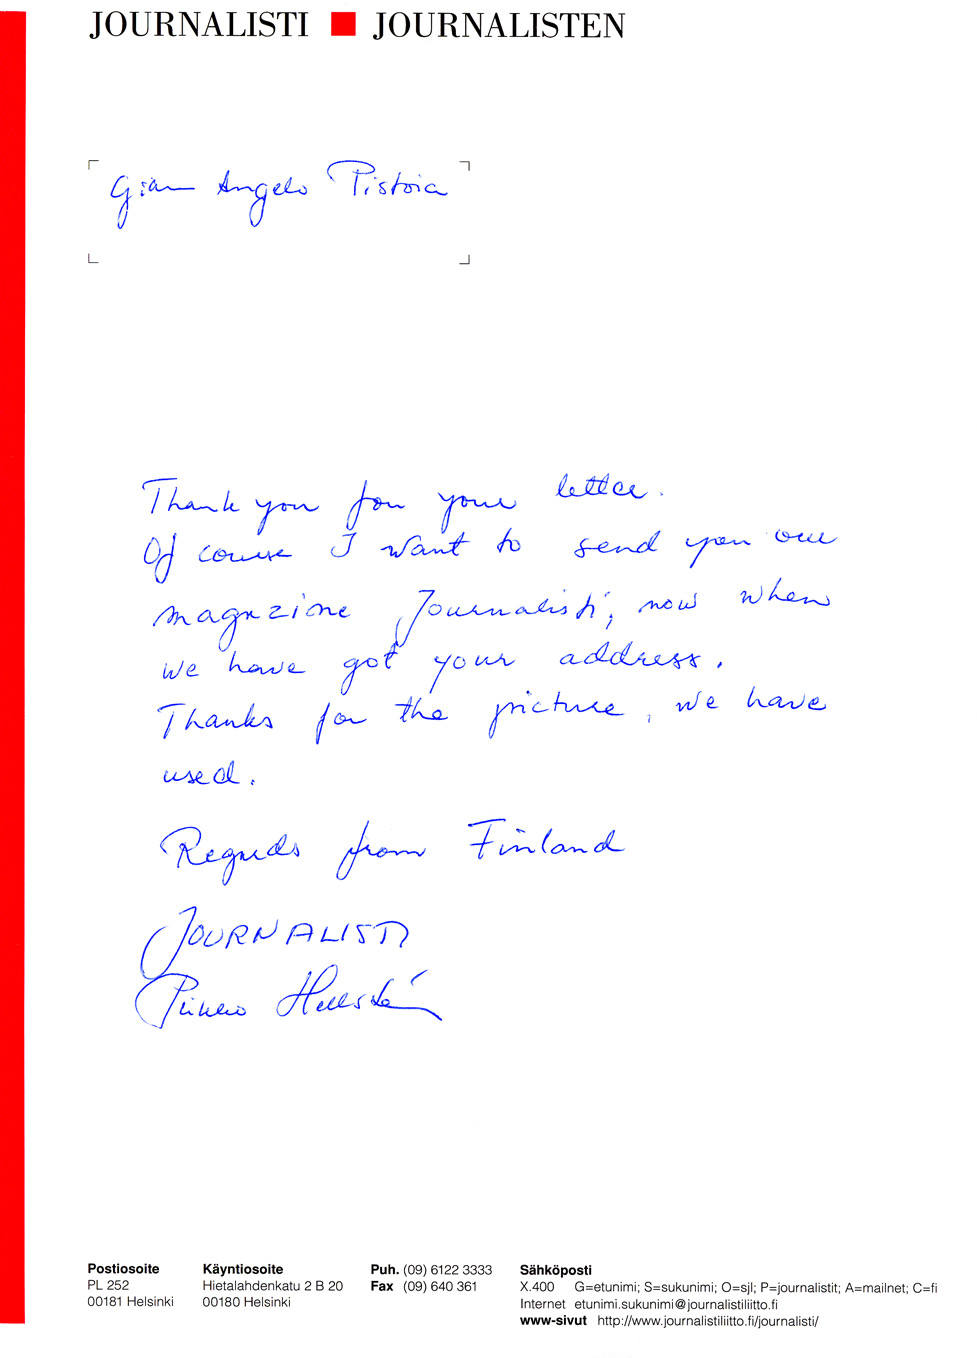 JOURNALISTI JOURNALISTEN
Gian Angelo Pistoia
Thank you for your letter.
Of course I want to send you our
magazine Journalisti, now when
we have got your address.
Thanks for the picture, we have
used.
Regards from Finland
JOURNALISTI
Postiosoite
PL 252
00181 Helsinki
Käyntiosoite
Hietalahdenkatu 2 B 20
00180 Helsinki
Puh. (09) 6122 3333
Fax (09) 640 361
Sähköposti
X.400 G=etunimi; S=sukunimi; O=sjl; P=journalistit; A=mailnet; C=fi
Internet etunimi.sukunimi@journalistiliitto.fi
www-sivut http://www.journalistiliitto.fi/journalisti/